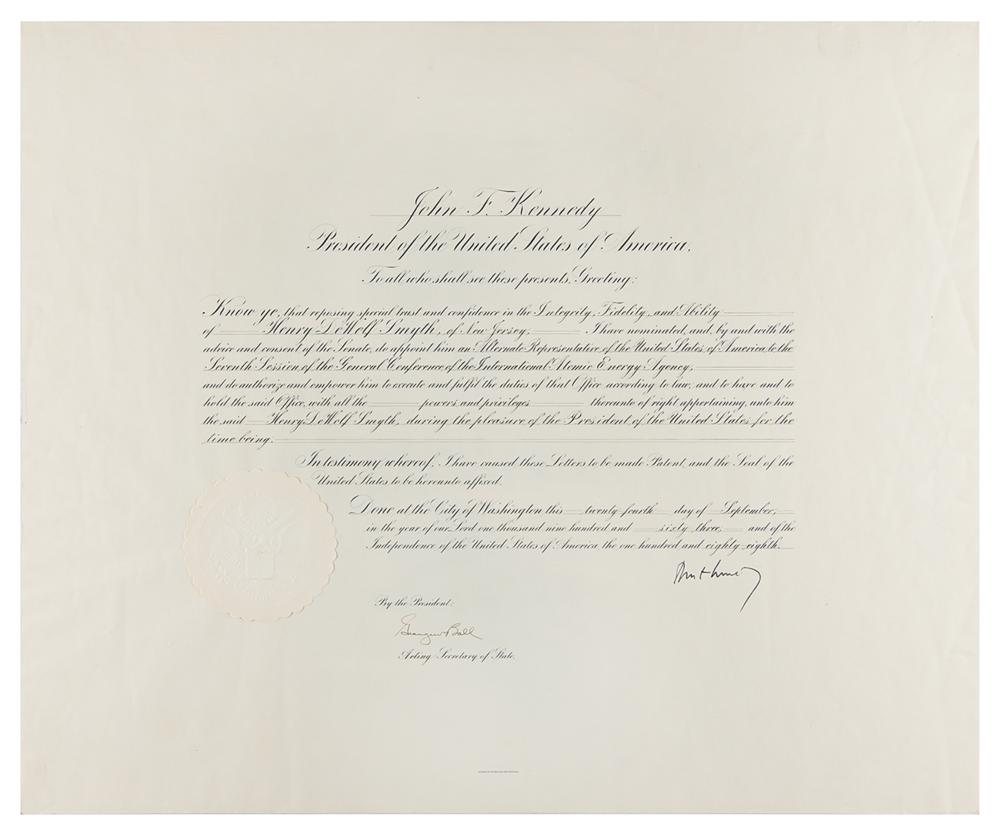 John F. Kennedy
President of the United States of America,
To all who shall see these presents, Greeting:
Know ye, that reposing special trust and confidence in the Integrity, Fidelity, and Ability
of Henry DeWolf Smyth, of New Jersey, I have nominated, and, by and with the
advice and consent of the Senate, do appoint him an Alternate Representative of the United States of America to the
Seventh Session of the General Conference of the International Atomic Energy Agency,
and do authorize and empower him to execute and fulfil the duties of that Office according to law, and to have and to
hold the said Office, with all the powers and privileges thereunto of right appertaining, unto him
the said Henry DeWolf Smyth, during the pleasure of the President of the United States for the
time being.
In testimony whereof, I have caused these Letters to be made Patent, and the Seal of the
United States to be hereunto affixed.
Done at the City of Washington this twenty-fourth day of September,
in the year of our Lord one thousand nine hundred and sixty-three, and of the
Independence of the United States of America the one hundred and eighty-eighth.
By the President:
George W. Ball
Acting Secretary of State.